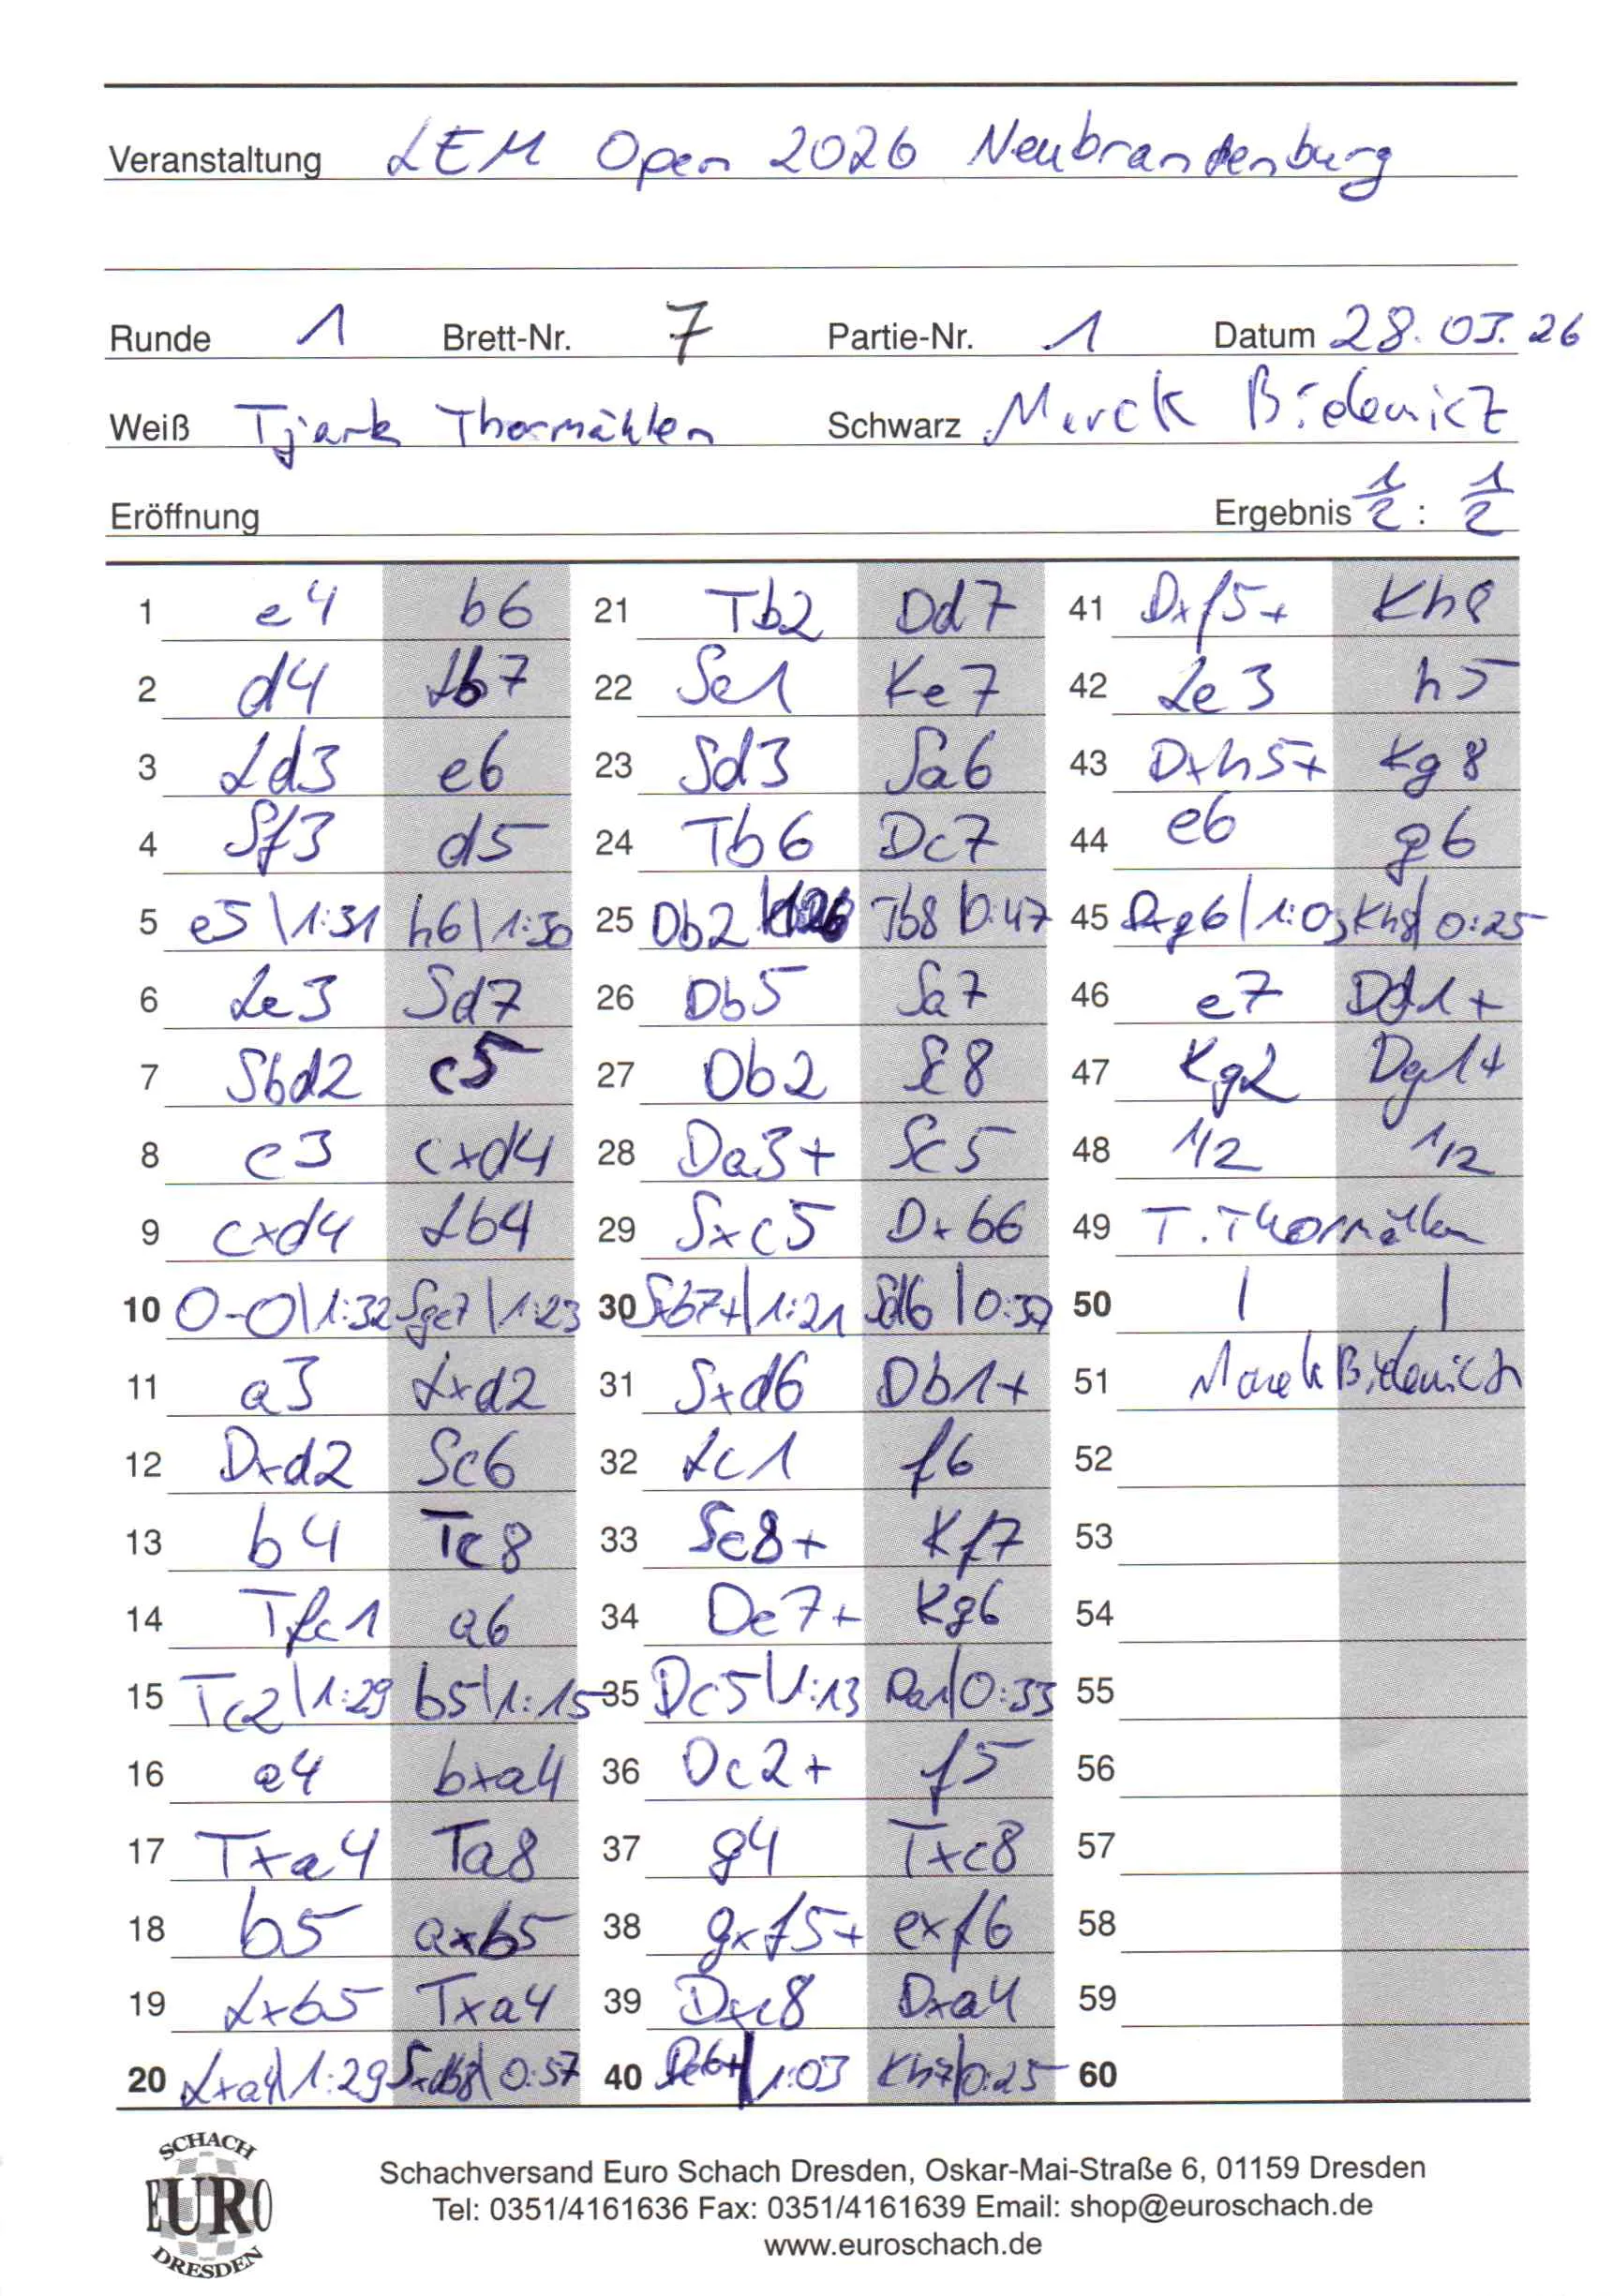 Veranstaltung LEM Open 2026 Neubrandenburg
Runde 1 Brett-Nr. 7 Partie-Nr. 1 Datum 28.03.26
Weiß Tjark Thormählen Schwarz Marek Bidenicz
Eröffnung Ergebnis 1/2 : 1/2
1 e4 b6
2 d4 Lb7
3 Ld3 e6
4 Sf3 d5
5 e5 | 1:31 h6 | 1:30
6 Le3 Sd7
7 Sbd2 c5
8 c3 cxd4
9 cxd4 Lb4
10 0-0 | 1:32 Sge7 | 1:23
11 a3 Lxd2
12 Dxd2 Sc6
13 b4 Tc8
14 Tfc1 a6
15 Tc2 | 1:29 b5 | 1:15
16 a4 bxa4
17 Txa4 Ta8
18 b5 axb5
19 Lxb5 Txa4
20 Lxa4 | 1:29 Sdb8 | 0:57
21 Tb2 Dd7
22 Se1 Ke7
23 Sd3 Sa6
24 Tb6 Dc7
25 Db2 Tb8 | 0:47
26 Db5 Sa7
27 Db2 Sc8
28 Da3+ Sc5
29 Sxc5 Dxb6
30 Sxb7+ | 1:21 Sd6 | 0:39
31 Sxd6 Db1+
32 Lc1 f6
33 Sc8+ Kf7
34 De7+ Kg6
35 Dc5 | 1:13 Da1 | 0:33
36 Dc2+ f5
37 g4 Txc8
38 gxf5+ exf6
39 Dxc8 Dxa4
40 De6+ | 1:03 Kh7 | 0:25
41 Dxf5+ Kh8
42 Le3 h5
43 Dxh5+ Kg8
44 e6 g6
45 Dxg6 | 1:03 Kh8 | 0:25
46 e7 Dd1+
47 Kg2 Dg1+
48 1/2 1/2
49 T. Thormählen
50 | |
51 Marek Bidenicz
52
53
54
55
56
57
58
59
60
SCHACH
EURO
DRESDEN
Schachversand Euro Schach Dresden, Oskar-Mai-Straße 6, 01159 Dresden
Tel: 0351/4161636 Fax: 0351/4161639 Email: shop@euroschach.de
www.euroschach.de